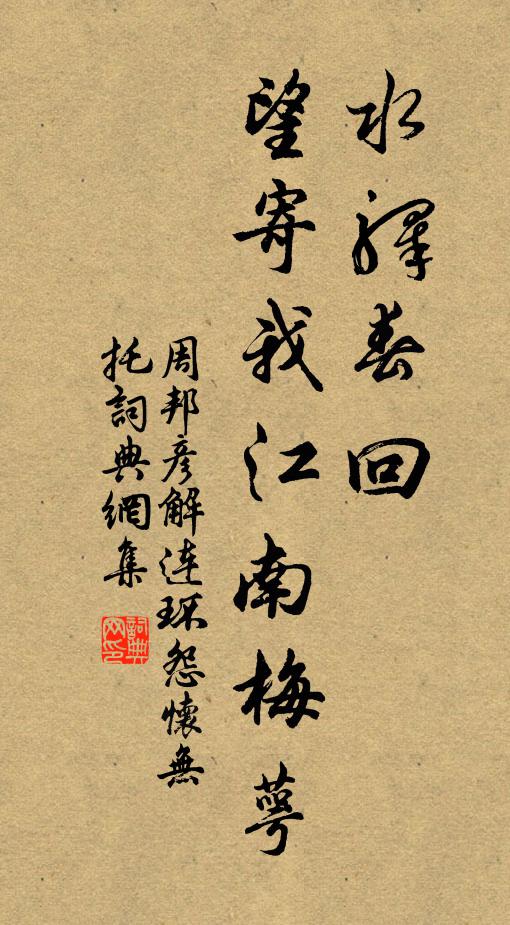 水驛春回
望寄我江南梅萼
周邦彥解連環怨懷無
托詞典網集
詞典
网印